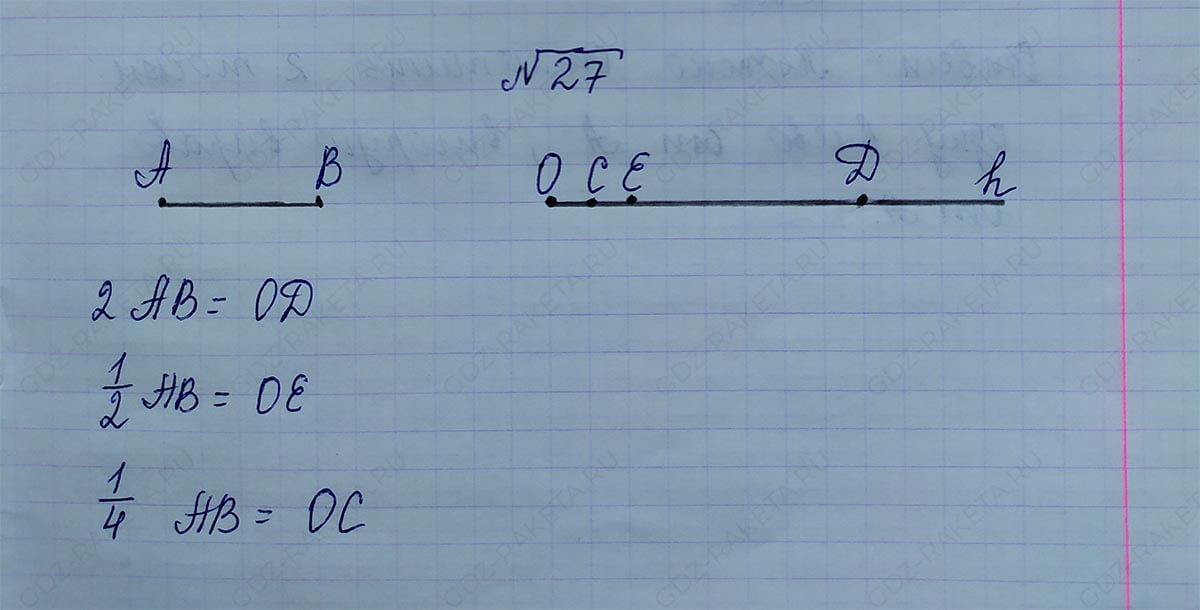 №27
A B O C E D h
2 AB = OD
1/2 AB = OE
1/4 AB = OC
GDZ-RAKETA.RU